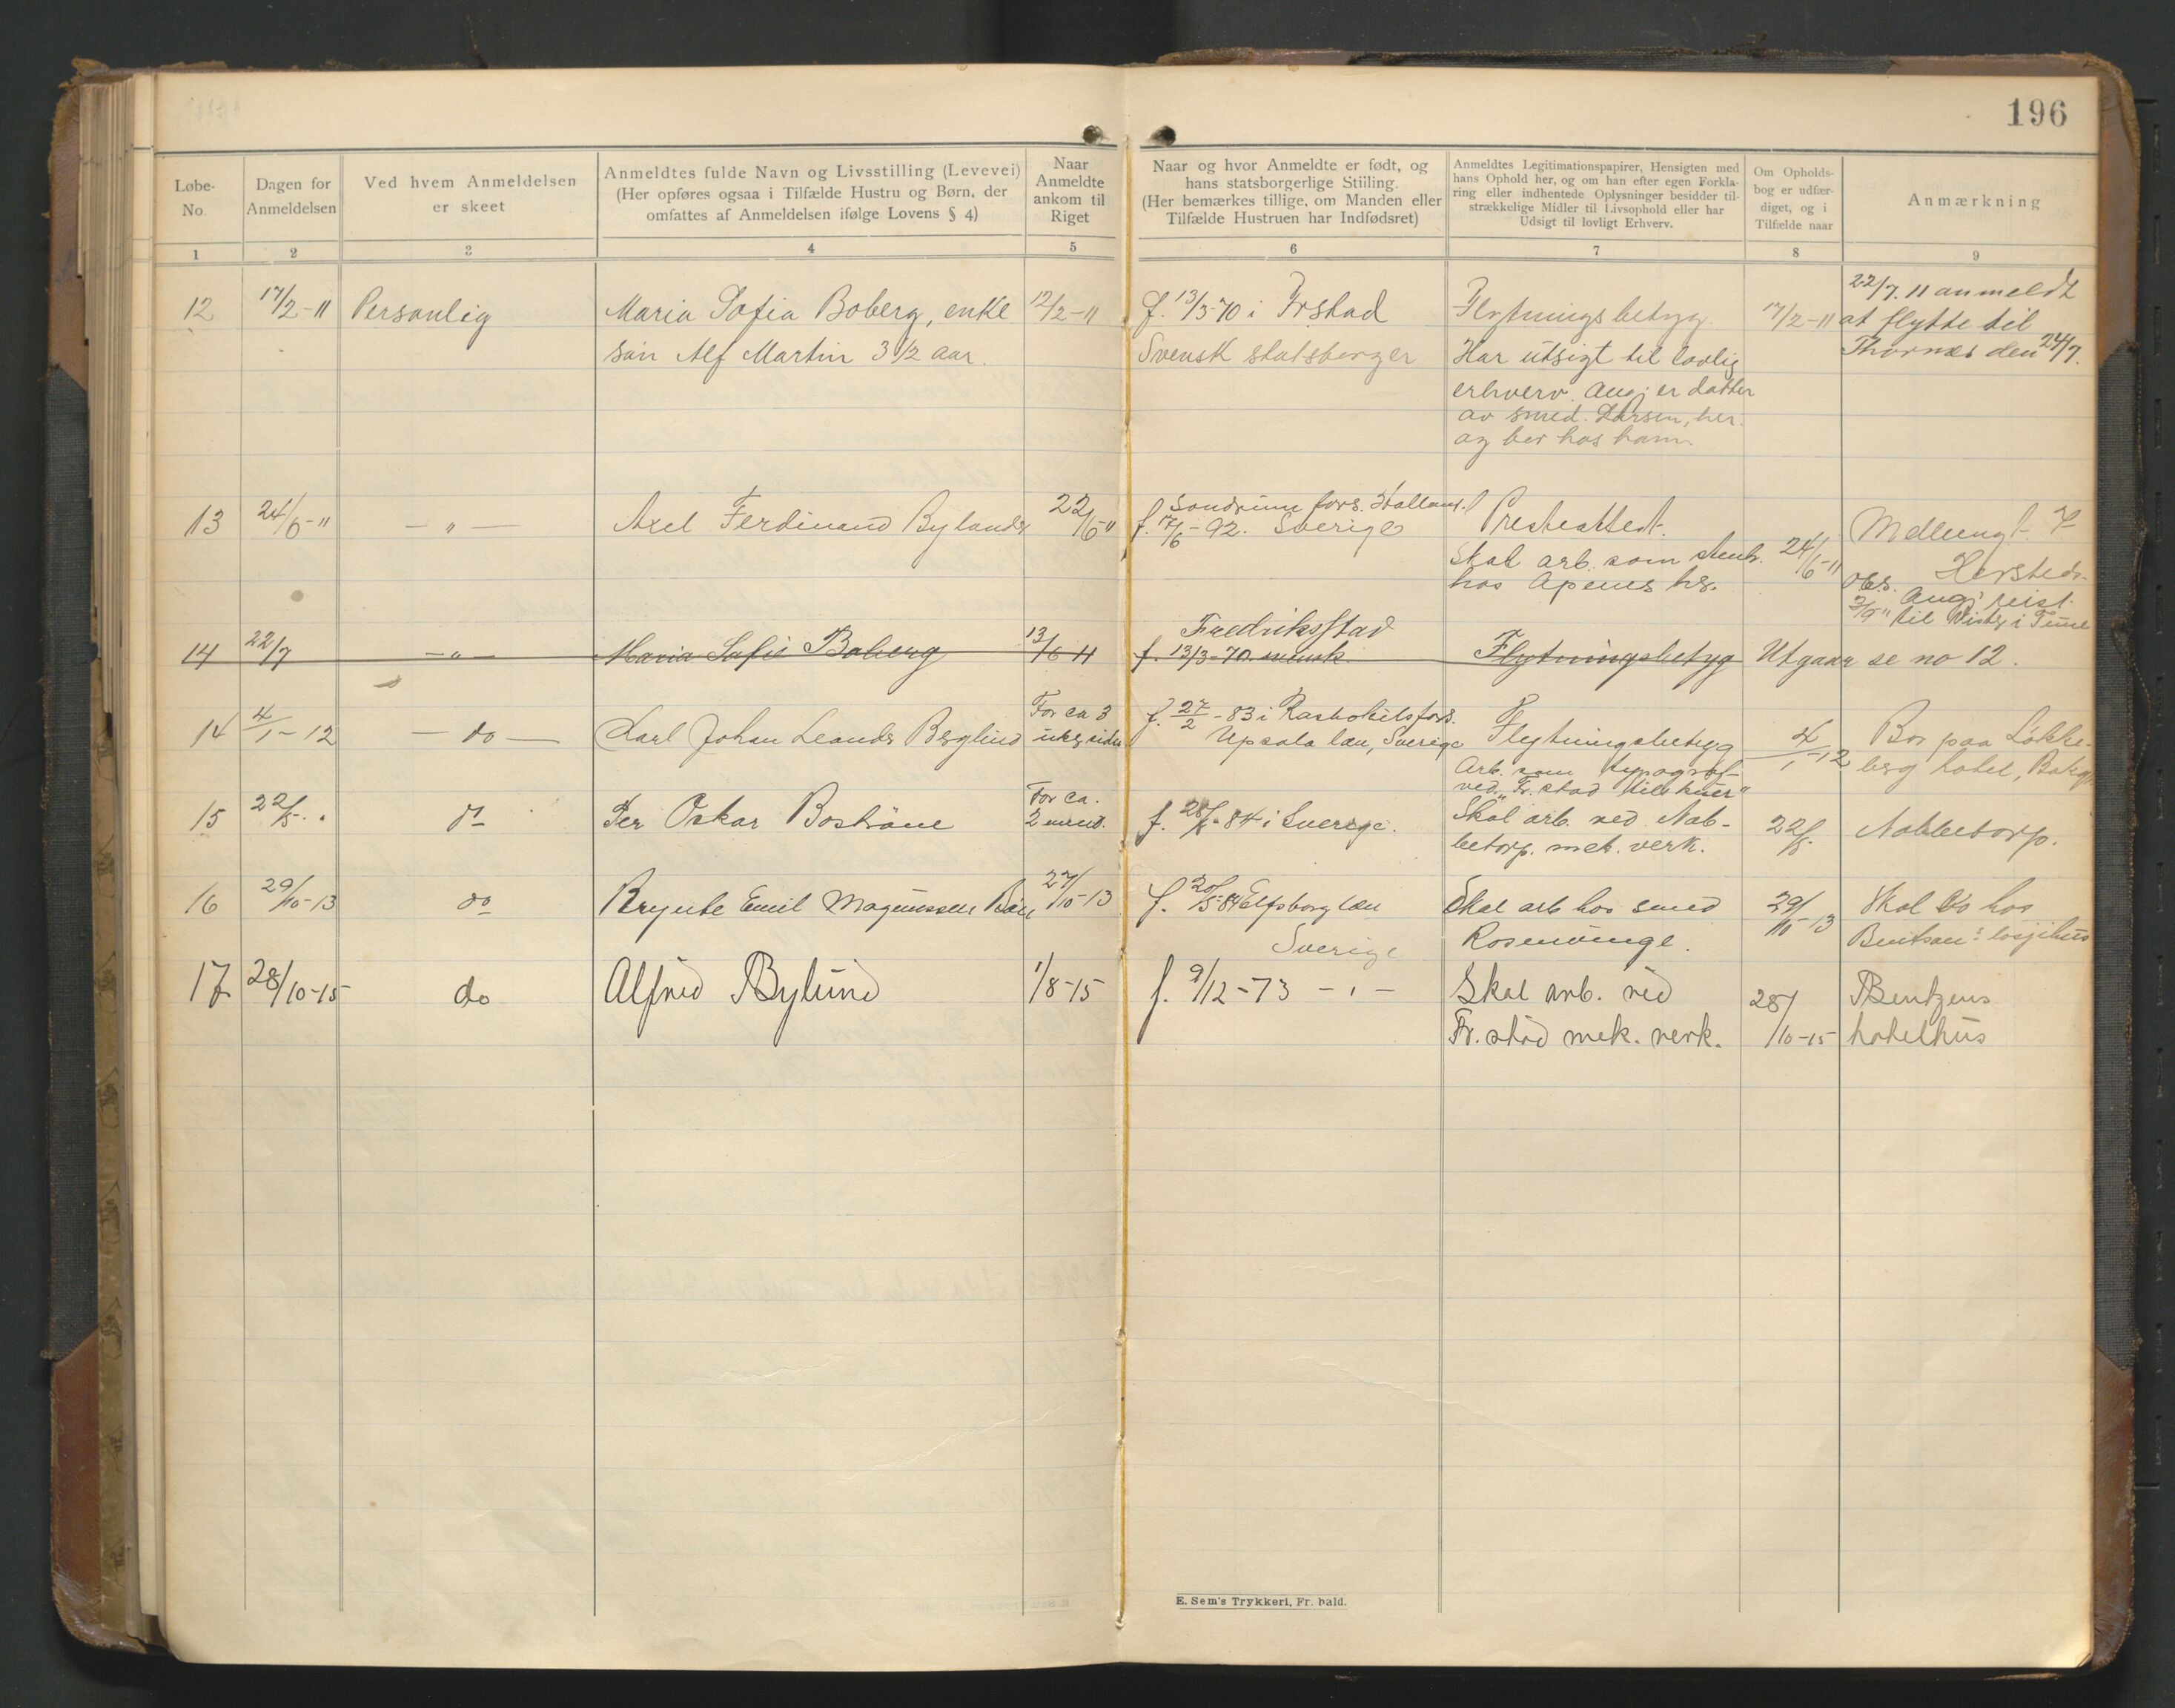 196
Løbe-
No.
Dagen for
Anmeldelsen
Ved hvem Anmeldelsen
er skeet
Anmeldtes fulde Navn og Livsstilling (Levevei)
(Her opføres ogsaa i Tilfælde Hustru og Børn, der
omfattes af Anmeldelsen ifølge Lovens § 4)
Naar
Anmeldte
ankom til
Riget
Naar og hvor Anmeldte er født, og
hans statsborgerlige Stiiling.
(Her bemærkes tillige, om Manden eller
Tilfælde Hustruen har Indfødsret)
Anmeldtes Legitimationspapirer, Hensigten med
hans Ophold her, og om han efter egen Forkla-
ring eller indhentede Oplysninger besidder til-
strækkelige Midler til Livsophold eller har
Udsigt til lovligt Erhverv.
Om Opholds-
bog er udfær-
diget, og i
Tilfælde naar
Anmærkning
1 2 3 4 5 6 7 8 9
12 17/2-11 Personlig Maria Sofia Boberg, enke 12/2-11 f. 13/3-70 i Frstad Flytningsbetyg 17/2-11 22/7.11 anmeldt
søn Alf Martin 3 1/2 aar. Svensk statsborger Har utsigt til lovlig at flytte til
erhverv. Ang. er datter Thornæs den 24/7.
av smed. Larsen, her.
og bor hos ham.
13 24/6-11 — " — Axel Ferdinand Bylander 22/6 11 f. 7/6-92. Sverige Presteattest.
Skal arb. som 24/6-11
hos Apenes
obs. Ang. reist
til i Tune
14 22/7 — " — Maria Sofie Boberg 13/6 11 Fredriksstad
f. 13/3-70. svensk. Flytningsbetyg Utgaar se no 12.
14 4/1-12 — do — Karl Johan Leander Berglind For ca 3
uker siden f. 27/2-83 i
Upsala län, Sverige Flytningsbetyg 4/1-12 Bor paa Løkke-
Arb. som typograf berg hotel,
ved „Fr.stad
15 22/5 do Per Oskar Boström For ca.
2 mnd. f. 28/ -84 i Sverige. Skal arb. ved Nab-
betorp. mek. verk. 22/5 Nabbetorp.
16 29/10-13 do Brynte Emil Magnussen 27/10-13 f. 20/5-84 Elfsborg län
Sverige Skal arb hos smed
Rosenvinge. 29/10-13 Skal bo hos
Bentsens losjihus
17 28/10-15 do Alfred Bylund 1/8-15 f. 9/12-73 — " — Skal arb. ved
Fr.stad mek. verk. 28/10-15 Bentzens
hotelhus
E. Sem's Trykkeri, Fr. hald.